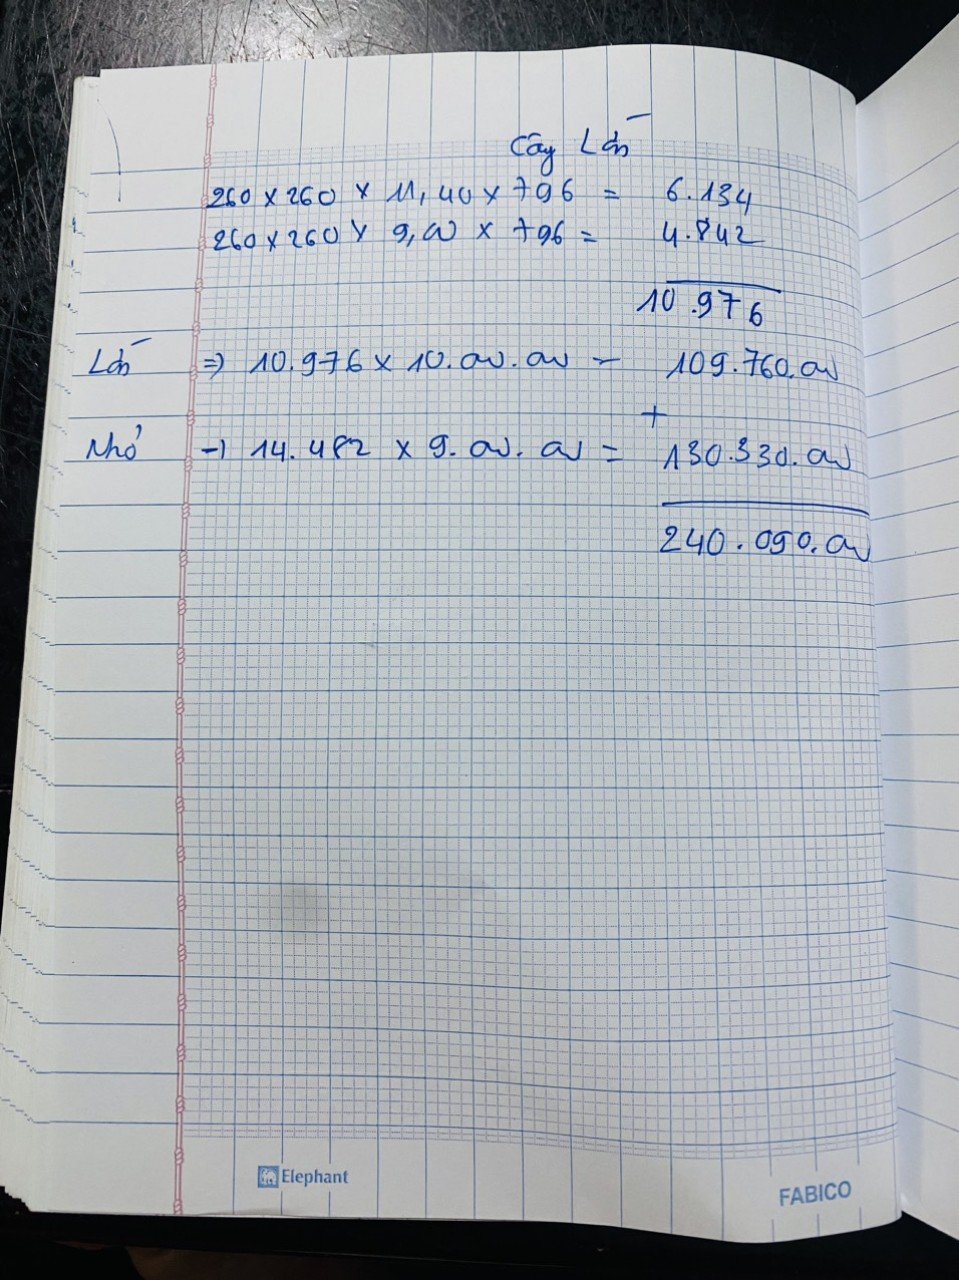 Cây Lớn
260 x 260 x 11,40 x 796 = 6.134
260 x 260 x 9,00 x 796 = 4.842
10.976
Lớn => 10.976 x 10.00.00 - 109.760.00
+
Nhỏ -> 14.482 x 9.00.00 = 130.330.00
240.090.00
Elephant
FABICO